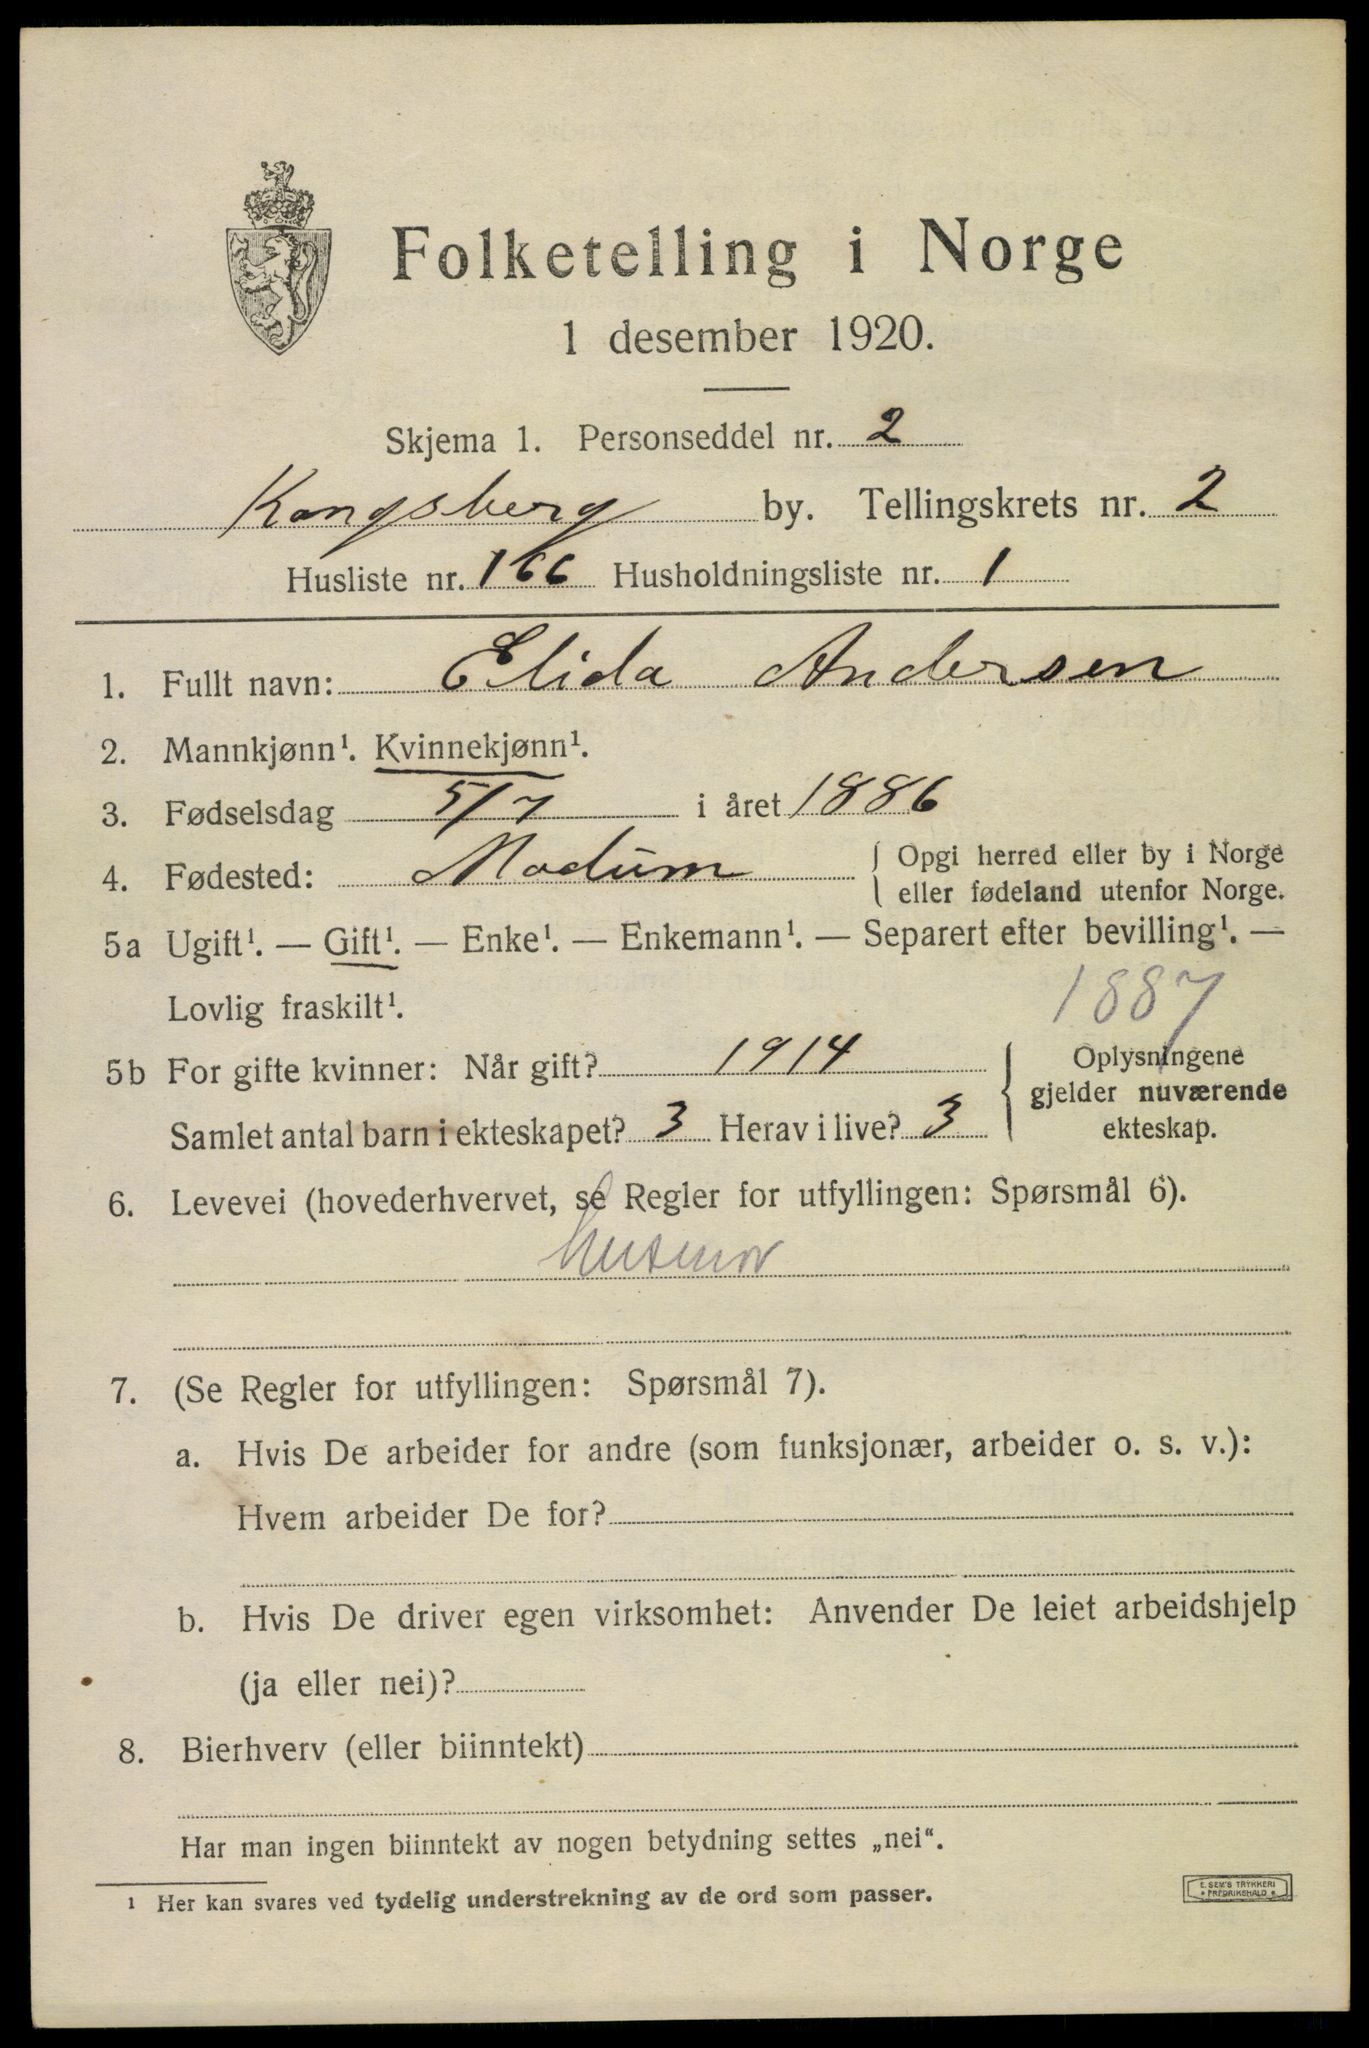 Folketelling i Norge
1 desember 1920.
Skjema 1. Personseddel nr. 2
Kongsberg by. Tellingskrets nr. 2
Husliste nr. 166 Husholdningsliste nr. 1
1. Fullt navn: Elida Andersen
2. Mannkjønn¹. Kvinnekjønn¹.
3. Fødselsdag 5/7 i året 1886
4. Fødested: Modum { Opgi herred eller by i Norge
eller fødeland utenfor Norge.
5a Ugift¹. — Gift¹. — Enke¹. — Enkemann¹. — Separert efter bevilling¹. —
Lovlig fraskilt¹. 1887
5b For gifte kvinner: Når gift? 1914
Samlet antal barn i ekteskapet? 3 Herav i live? 3
{ Oplysningene
gjelder nuværende
ekteskap.
6. Levevei (hovederhvervet, se Regler for utfyllingen: Spørsmål 6).
Husmor
7. (Se Regler for utfyllingen: Spørsmål 7).
a. Hvis De arbeider for andre (som funksjonær, arbeider o. s. v.):
Hvem arbeider De for?
b. Hvis De driver egen virksomhet: Anvender De leiet arbeidshjelp
(ja eller nei)?
8. Bierhverv (eller biinntekt)
Har man ingen biinntekt av nogen betydning settes „nei“.
¹ Her kan svares ved tydelig understrekning av de ord som passer.
E. SEM'S TRYKKERI
* FREDRIKSHALD *